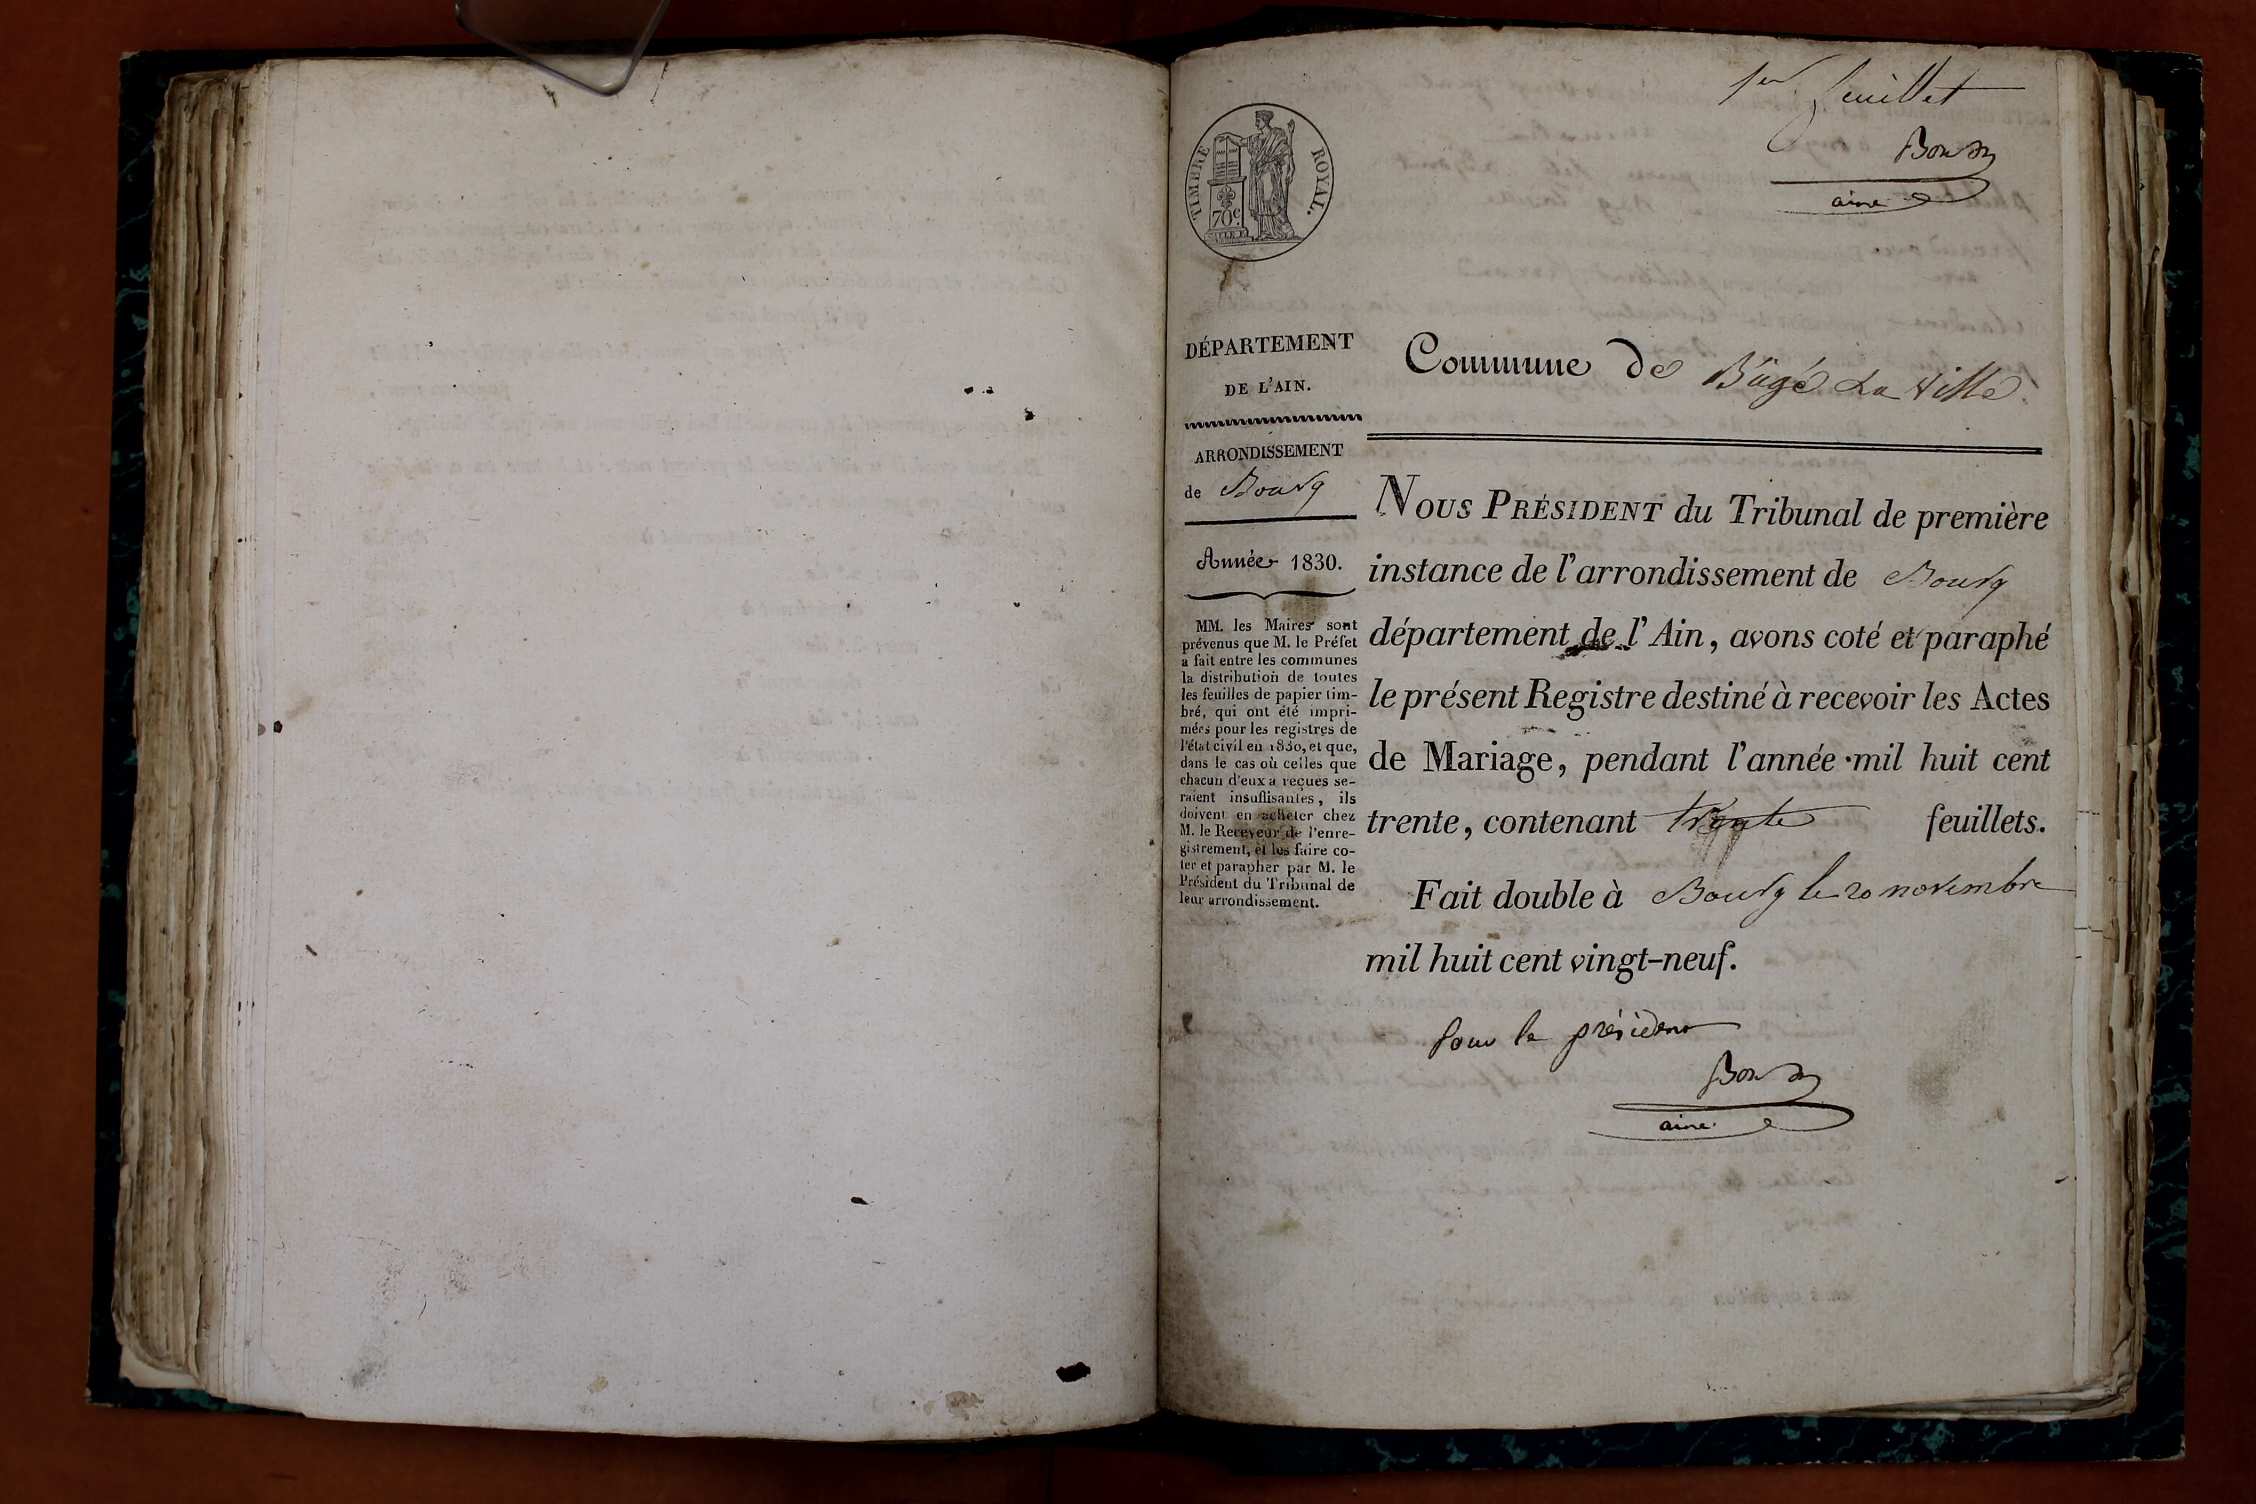 1er feuillet
aine
TIMBRE ROYAL.
70c
DÉPARTEMENT
DE L'AIN.
ARRONDISSEMENT
de Bourg
Année 1830.
MM. les Maires sont
prévenus que M. le Préfet
a fait entre les communes
la distribution de toutes
les feuilles de papier tim-
bré, qui ont été impri-
mées pour les registres de
l'état civil en 1830, et que,
dans le cas où celles que
chacun d'eux a reçues se-
raient insuffisantes, ils
doivent en acheter chez
M. le Receveur de l'enre-
gistrement, et les faire co-
ter et parapher par M. le
Président du Tribunal de
leur arrondissement.
Commune de Bâgé La Ville
NOUS PRÉSIDENT du Tribunal de première
instance de l'arrondissement de Bourg
département de l'Ain, avons coté et paraphé
le présent Registre destiné à recevoir les Actes
de Mariage, pendant l'année mil huit cent
trente, contenant trente feuillets.
Fait double à Bourg le 20 novembre
mil huit cent vingt-neuf.
pour le président
aine